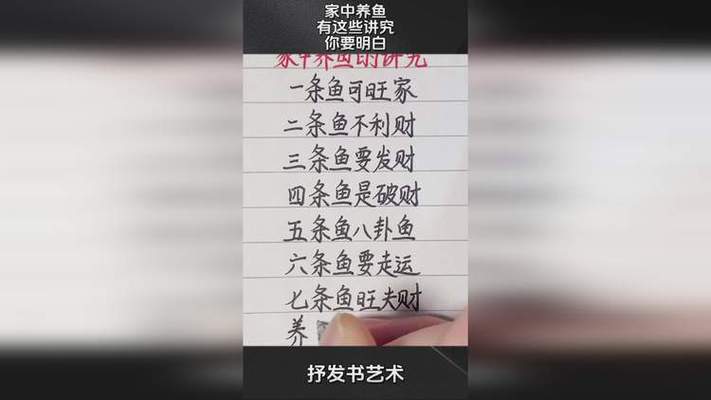 家中养鱼
有这些讲究
你要明白
家中养鱼的讲究
一条鱼可旺家
二条鱼不利财
三条鱼要发财
四条鱼是破财
五条鱼八卦鱼
六条鱼要走运
七条鱼旺夫财
养
抒发书艺术